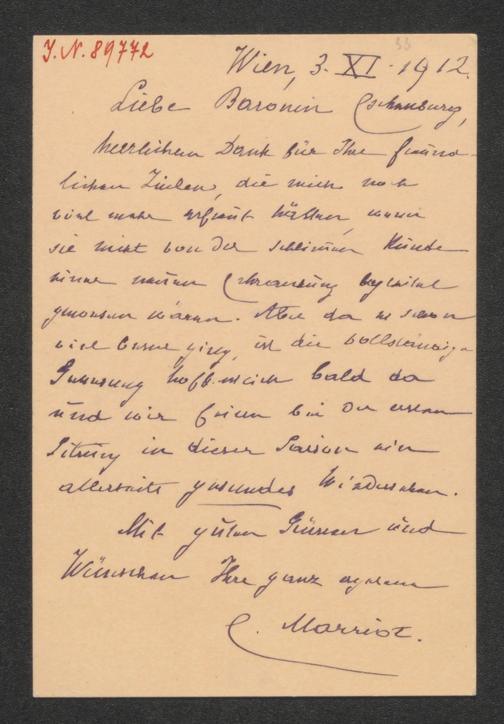 J. N. 89772
33
Wien, 3. XI. 1912.
Liebe Baronin
herzlichen Dank für Ihre freund-
lichen Zeilen, die mich noch
viel mehr erfreut hätten, wenn
sie nicht von der schlimmen Kunde
einer neuen Erkrankung begleitet
gewesen wären. Aber da es schon
viel besser ging, ist die vollständige
Genesung hoffentlich bald da
und wir feiern bei der ersten
Sitzung in dieser Saison ein
allerseits gesundes Wiedersehen.
Mit guten Grüßen und
Wünschen Ihre ganz ergebene
E. Marriot.